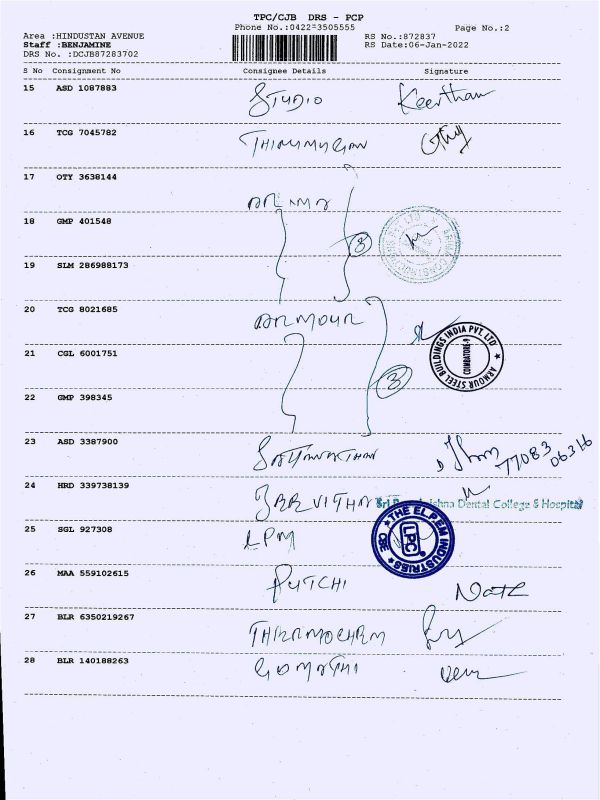 TPC/CJB DRS - PCP
Phone No.:0422-3505555 Page No.:2
Area :HINDUSTAN AVENUE RS No.:872837
Staff :BENJAMINE RS Date:06-Jan-2022
DRS No. :DCJB87283702
S No Consignment No Consignee Details Signature
15 ASD 1087883 STUDIO Keerthan
16 TCG 7045782 THIRUMURGAN
17 OTY 3638144
ARIMA
18 GMP 401548 3
19 SLM 286988173
20 TCG 8021685 ARMOUR
ARMOUR STEEL BUILDINGS INDIA PVT. LTD
COIMBATORE-9
21 CGL 6001751
22 GMP 398345 3
23 ASD 3387900 77083
06316
24 HRD 339738139
Dental College & Hospital
25 SGL 927308 LPM
THE ELPEM INDUSTRIES CBE
LPC
26 MAA 559102615
27 BLR 6350219267
28 BLR 140188263 GOMATHI